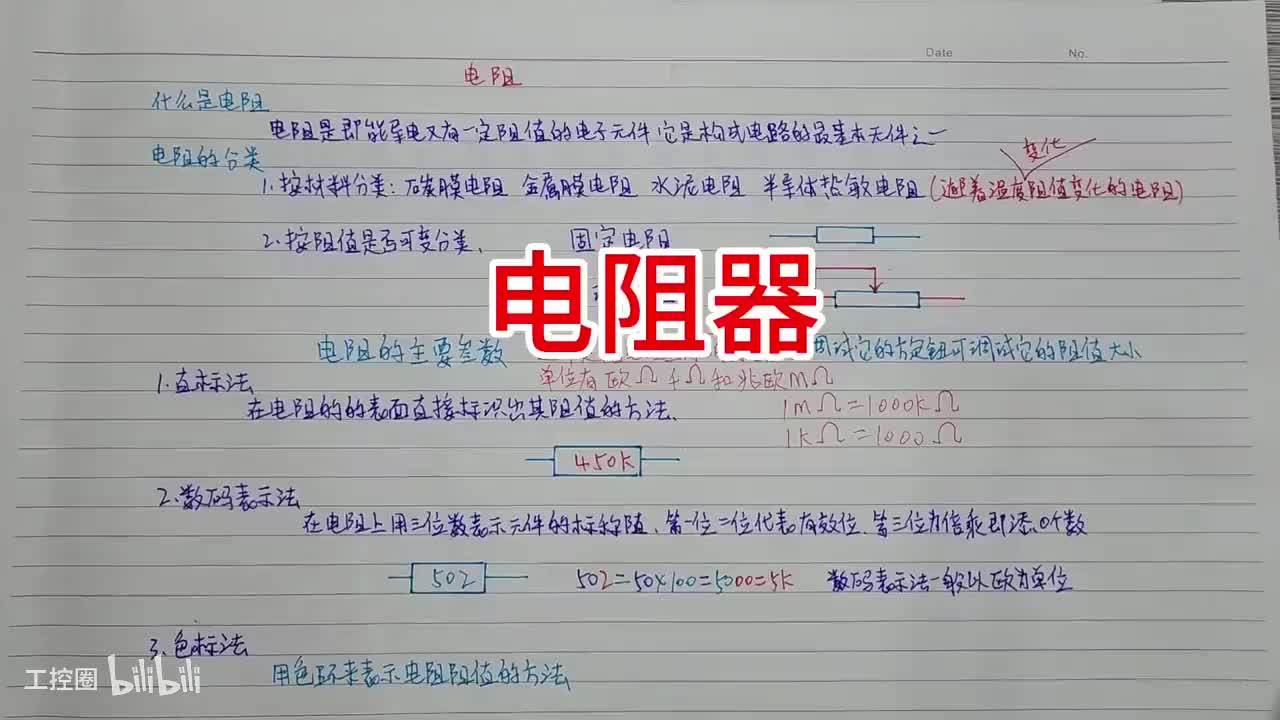 Date No.
电阻
什么是电阻
电阻是即能导电又有一定阻值的电子元件 它是构成电路的最基本元件之一
电阻的分类
变化
1.按材料分类：碳膜电阻 金属膜电阻 水泥电阻 半导体热敏电阻（随着温度阻值变化的电阻）
2.按阻值是否可变分类、 固定电阻
电阻器
电阻的主要参数
调试它的方定钮可调试它的阻值大小
单位有欧Ω 千Ω和兆欧MΩ
1.直标法
在电阻的的表面直接标识出其阻值的方法、
1mΩ=1000kΩ
1kΩ=1000Ω
450k
2.数码表示法
在电阻上用三位数表示元件的标称值、第一位二位代表有效位、第三位为倍乘即添0个数
502 502=50×100=5000=5k 数码表示法一般以欧为单位
3、色标法
用色环来表示电阻阻值的方法
工控圈 bilibili